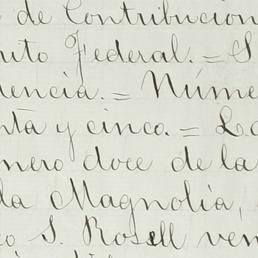 de Contribucion
uto Federal. = S
encia. = Núme
nta y cinco. = La
mero doce de la
la Magnolia,
o S. Rosell ven